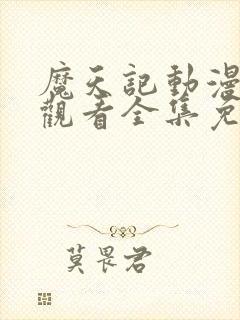 魔天記動漫
觀看全集免
莫畏君